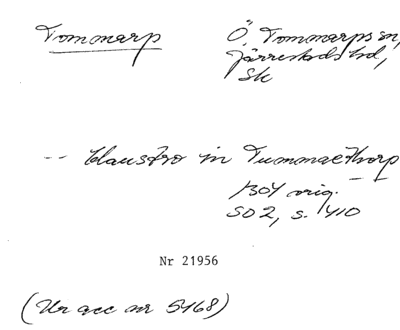 Tommarp
Ö. Tommarps sn,
Järrestads hd,
Sk
-- claustro in Tummaethorp
1304 orig.
SD 2, s. 410
Nr 21956
(Ur acc nr 5468)